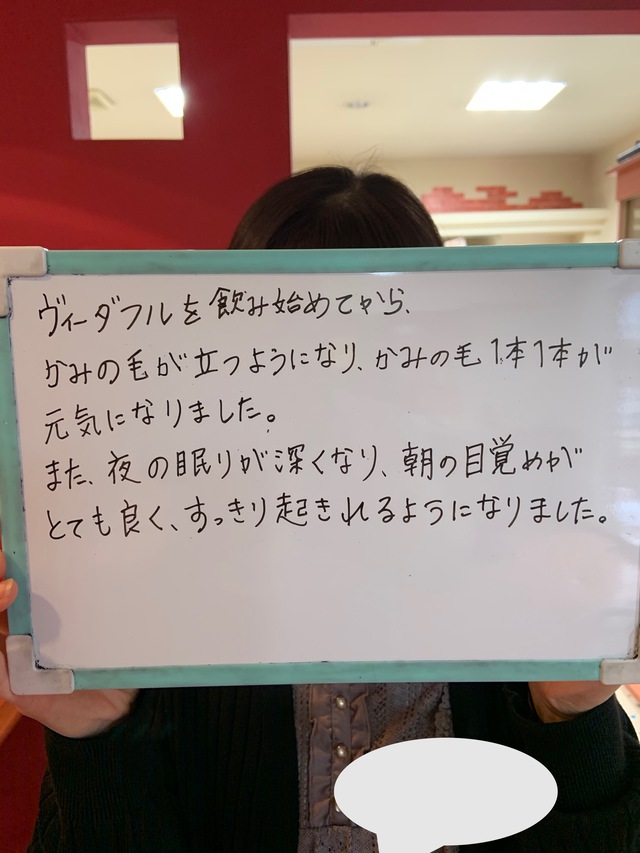 ヴィーダフルを飲み始めてから、
かみの毛が立つようになり、かみの毛1本1本が
元気になりました。
また、夜の眠りが深くなり、朝の目覚めが
とても良く、すっきり起きれるようになりました。